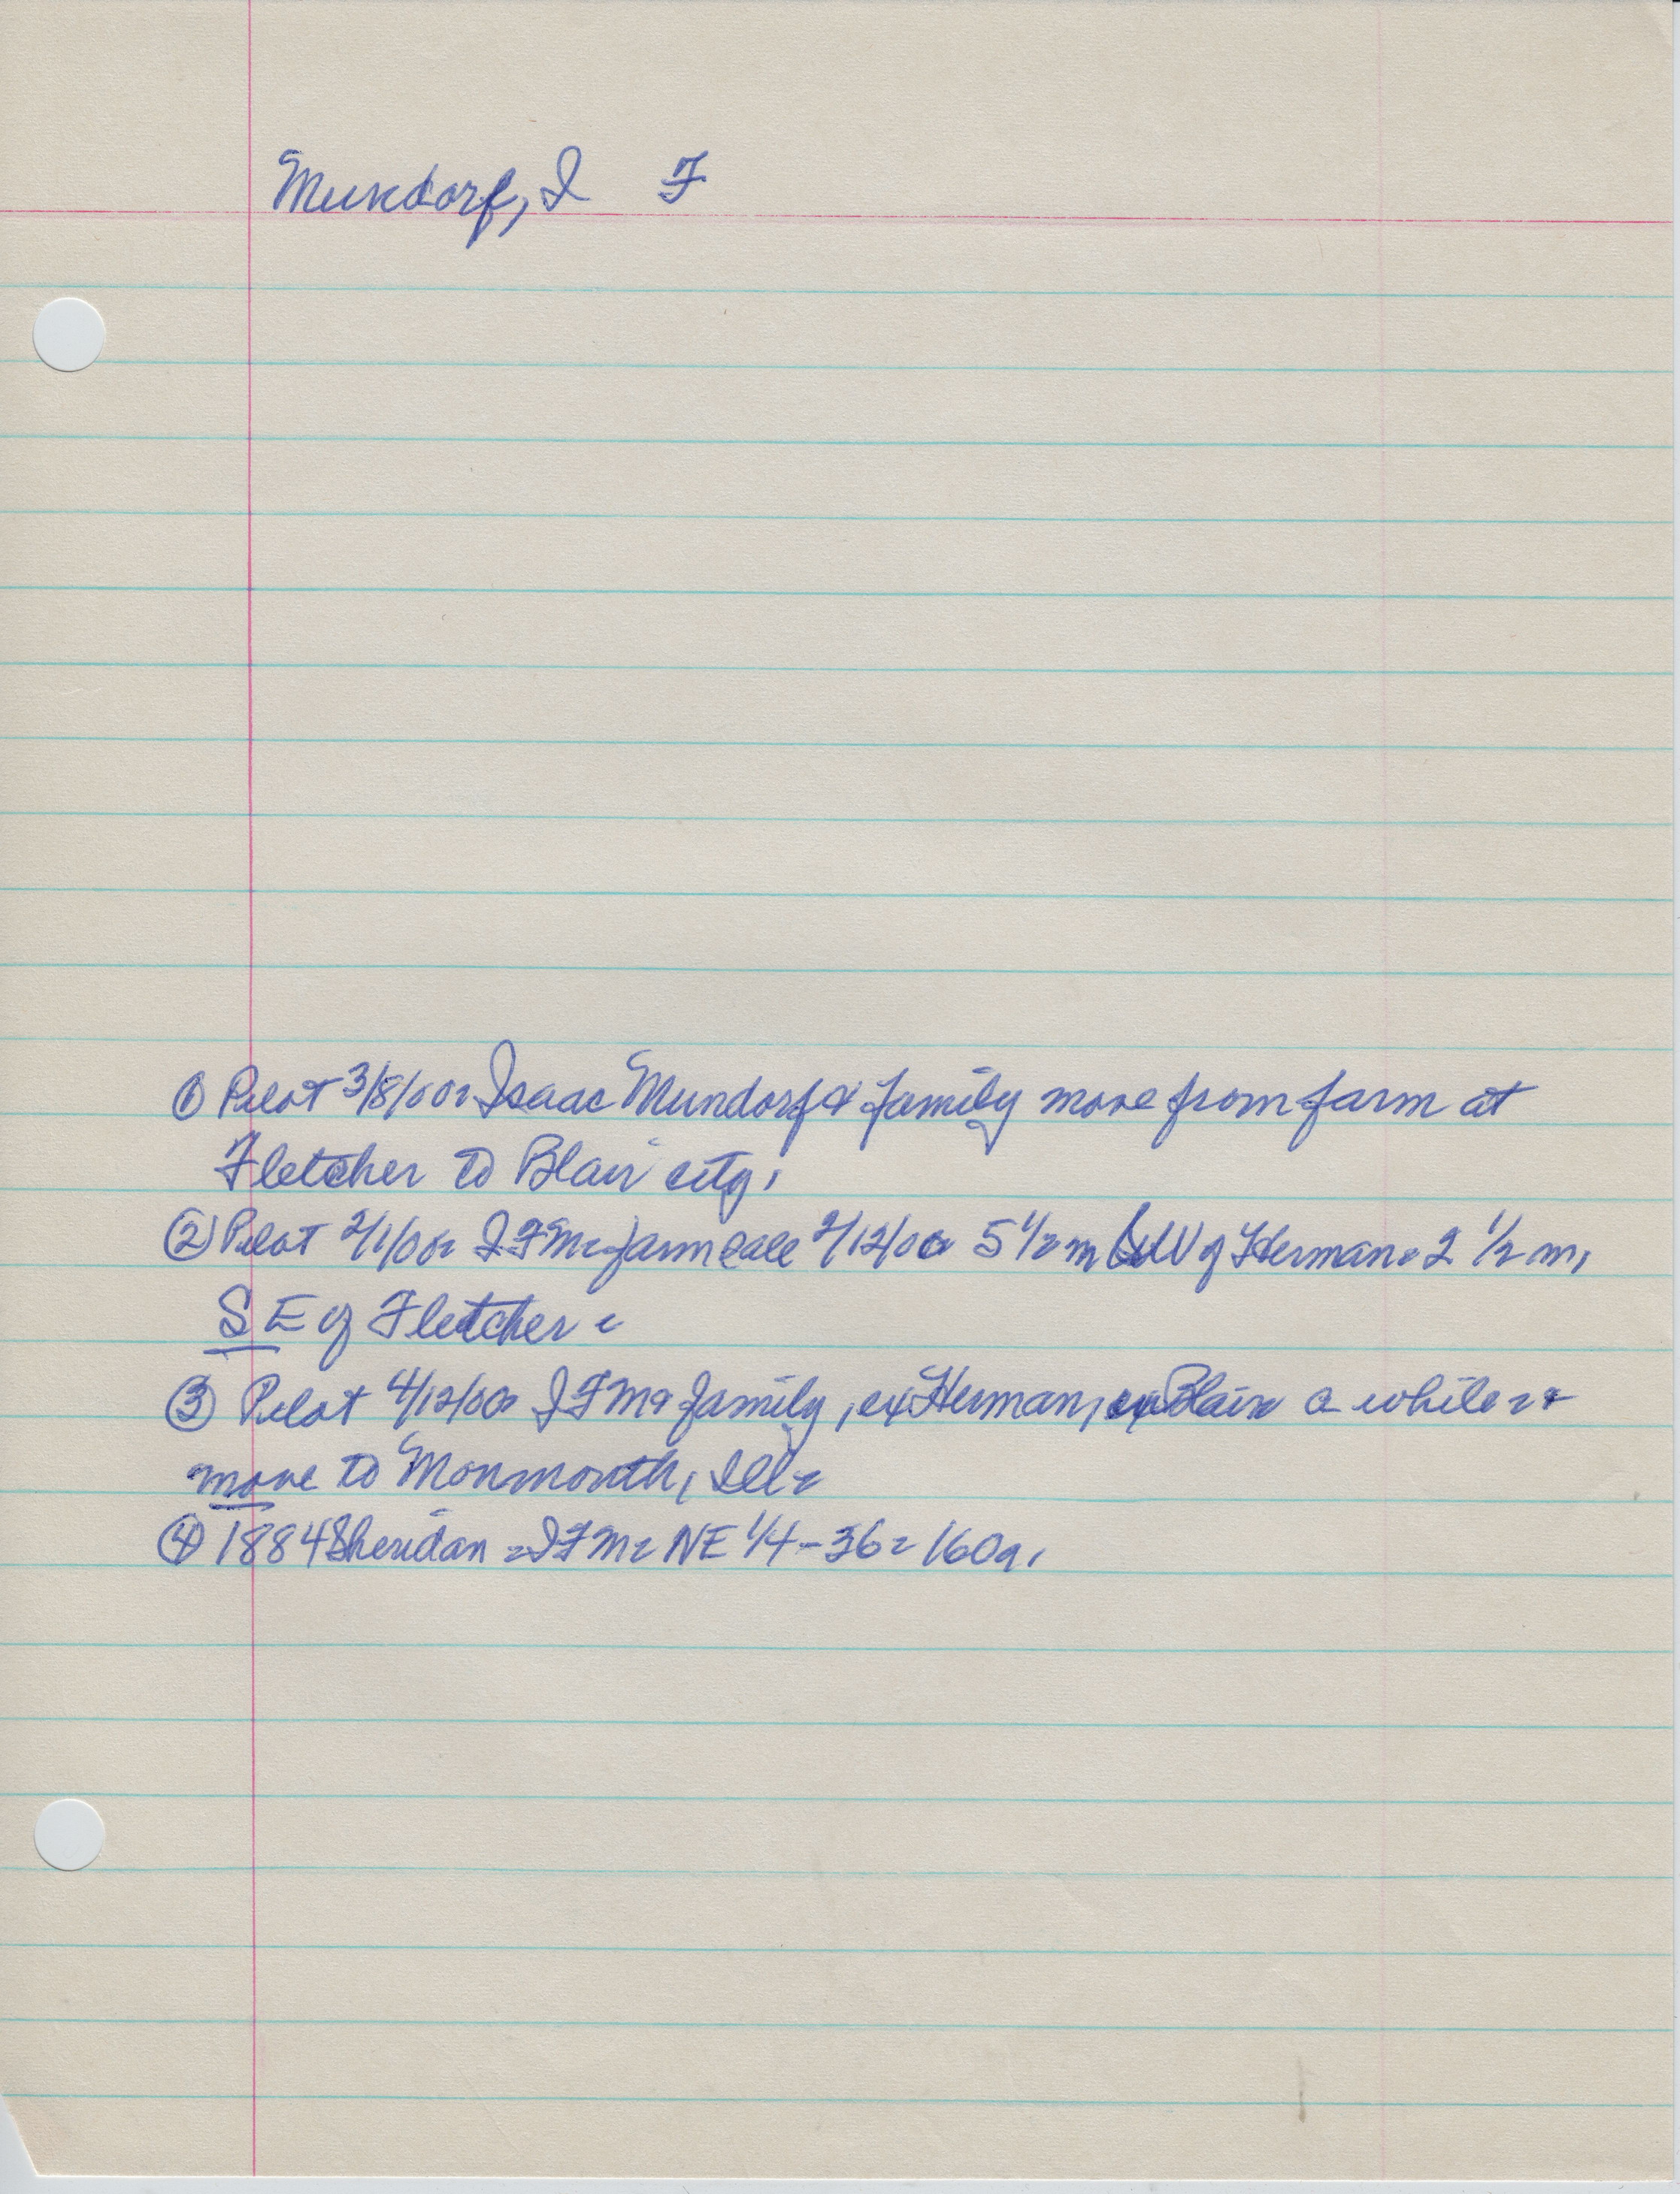 Mundorf, I F
① Pilot 3/8/00= Isaac Mundorf & family move from farm at
Fletcher to Blair city.
② Pilot 2/1/00= I F M= farm sale 2/12/00 5 1/2 m W of Herman= 2 1/2 m.
SE of Fletcher=
③ Pilot 4/12/00= I F M & family, ex Herman, ex Blair a while= &
move to Monmouth, Ill=
④ 1884 Sheridan = I F M= NE 1/4-36= 160a.